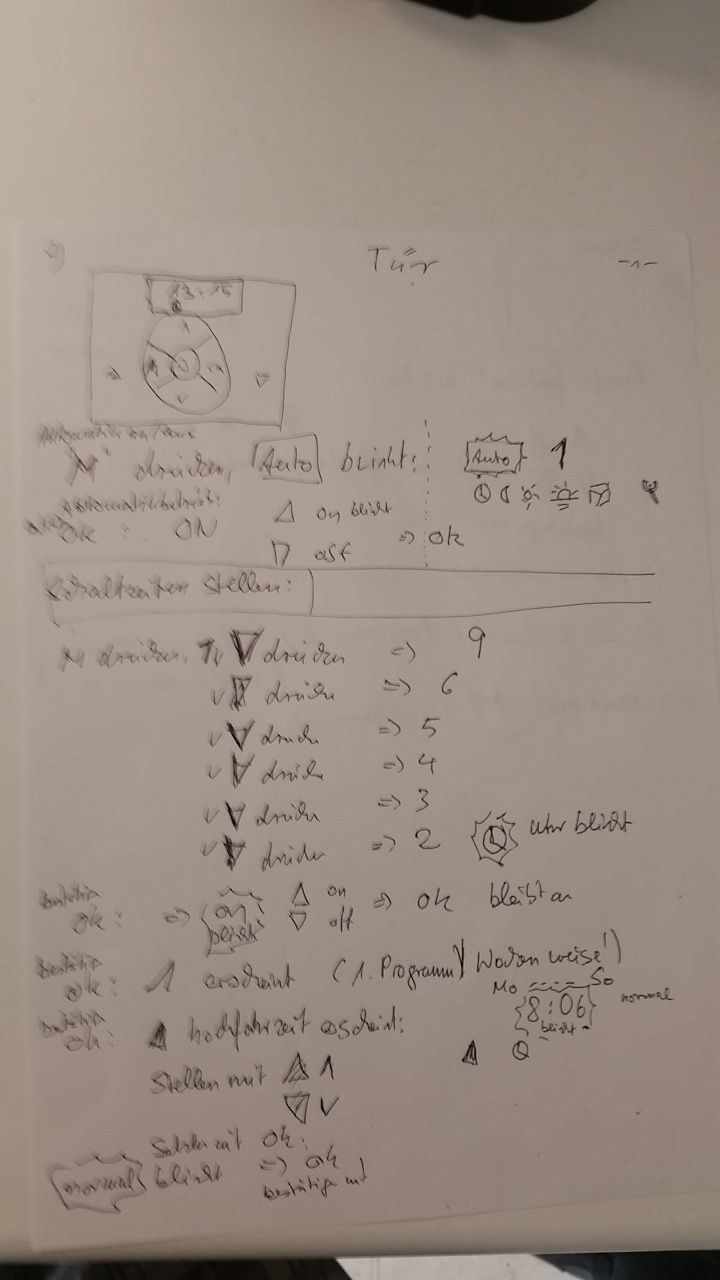 Tür -1-
13:15
M drücken, Auto blinkt: Auto 1
OK : ON △ on blinkt
▽ off => ok
Schaltzeiten stellen:
M drücken, ▽ drücken => 9
v ▽ drücke => 6
v ▽ drücke => 5
v ▽ drücke => 4
v ▽ drücke => 3
v ▽ drücke => 2 Uhr blinkt
ok: => on blinkt △ on => ok bleibt an
▽ off
ok: 1 erscheint (1. Programm)
Mo So
ok: ▲ hochfahrzeit erscheint: 8:06 normal
blinkt
Stellen mit △ ʌ
▽ v
mit ok:
normal blinkt => ok
bestätigen mit